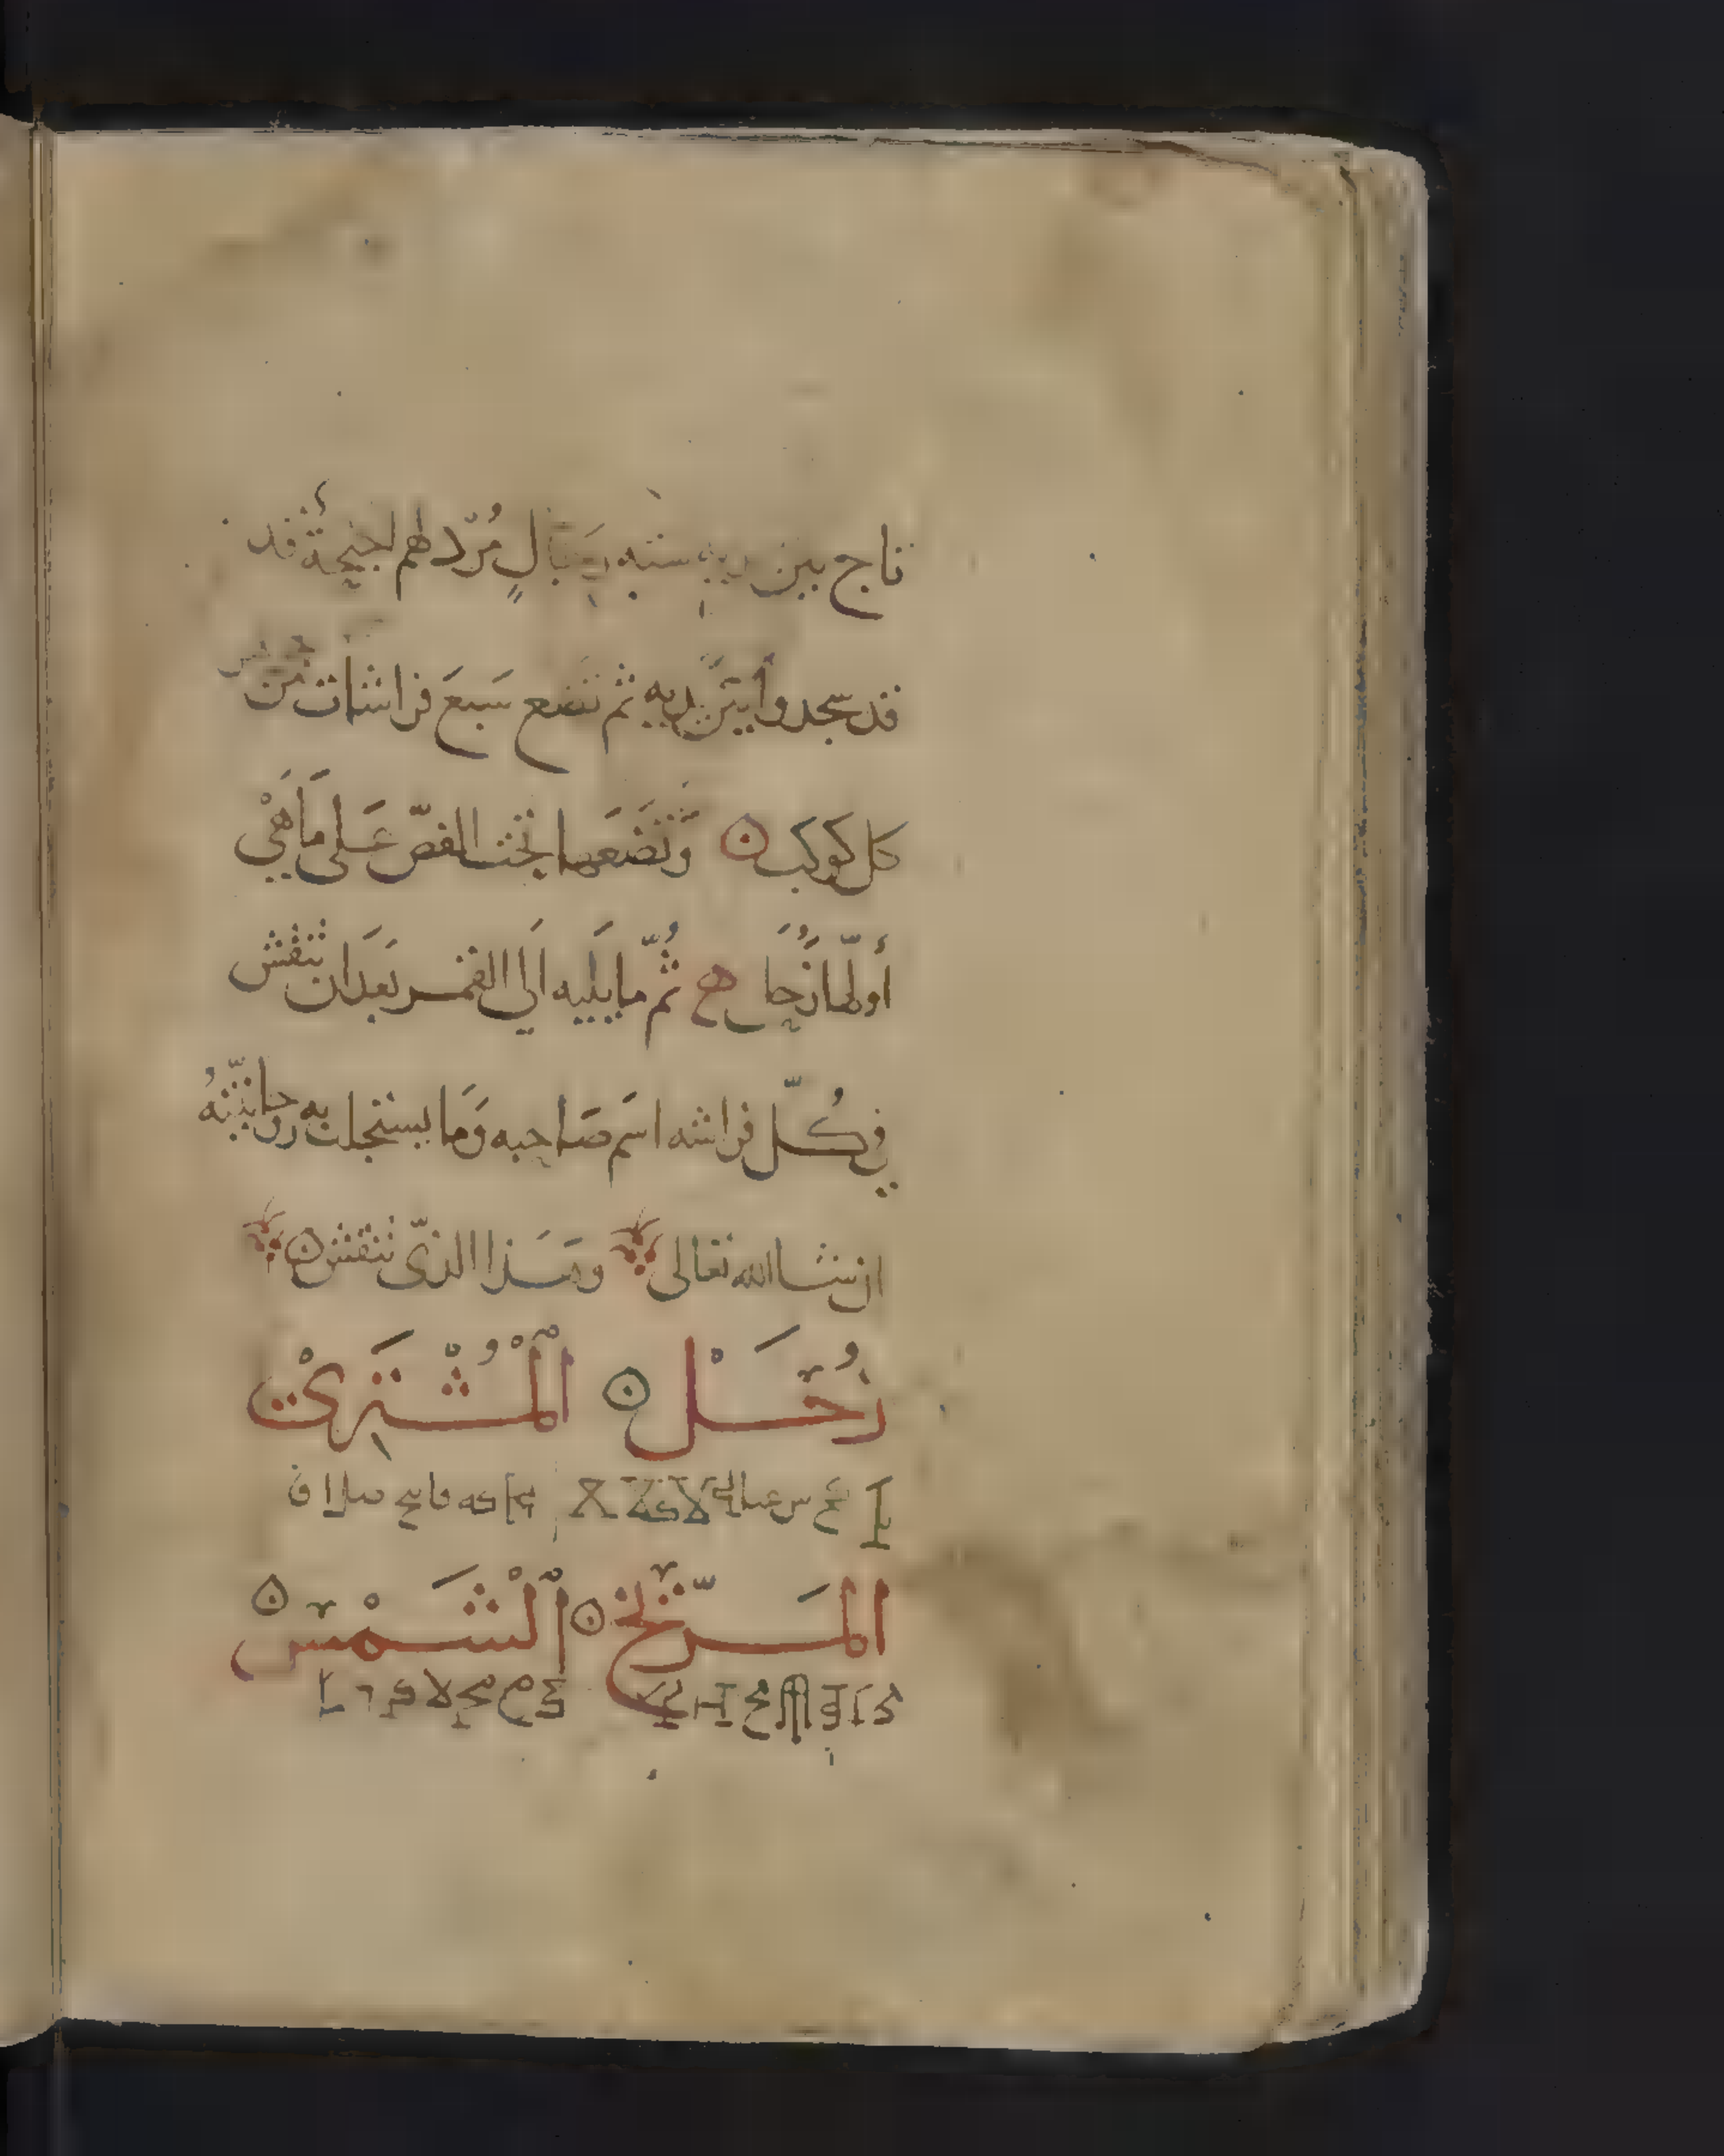 تاج بين يديه ستة رجال مُرّد لهم اجنحة قد
قد سجدوا بين يديه ثم تضع سَبعَ فراشات من
كل كوكب وَتَضَعَها تحت الفصّ عَلى مَا هي
أولها زُحل ثُمّ ما يَليه اَلى القمر بَعدَ ان تنقش
في كُلّ فراشه اسَم صَاحبه وَما يستجلب به روحانيّته
ان شا الله تعالى وهَذا الذّي تنقش
زُحَلْ اَلْمُشْتَرِيْ
المَرّيخ اَلْشَمْسْ